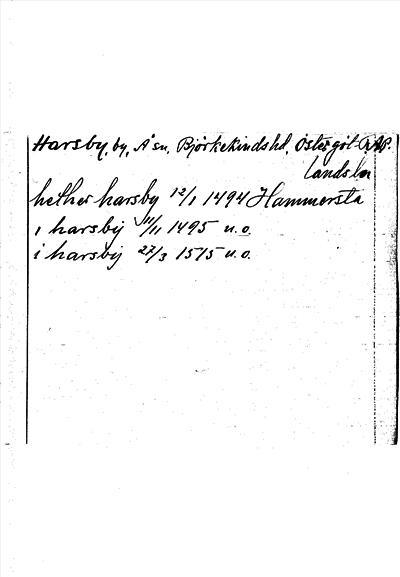 Harsby, by, Å sn, Björkekinds hd, Östergöt-
lands län
hether harsby 12/1 1494 Hammersta
i harsbij 11/11 1495 u.o.
i harsbij 27/3 1515 u.o.